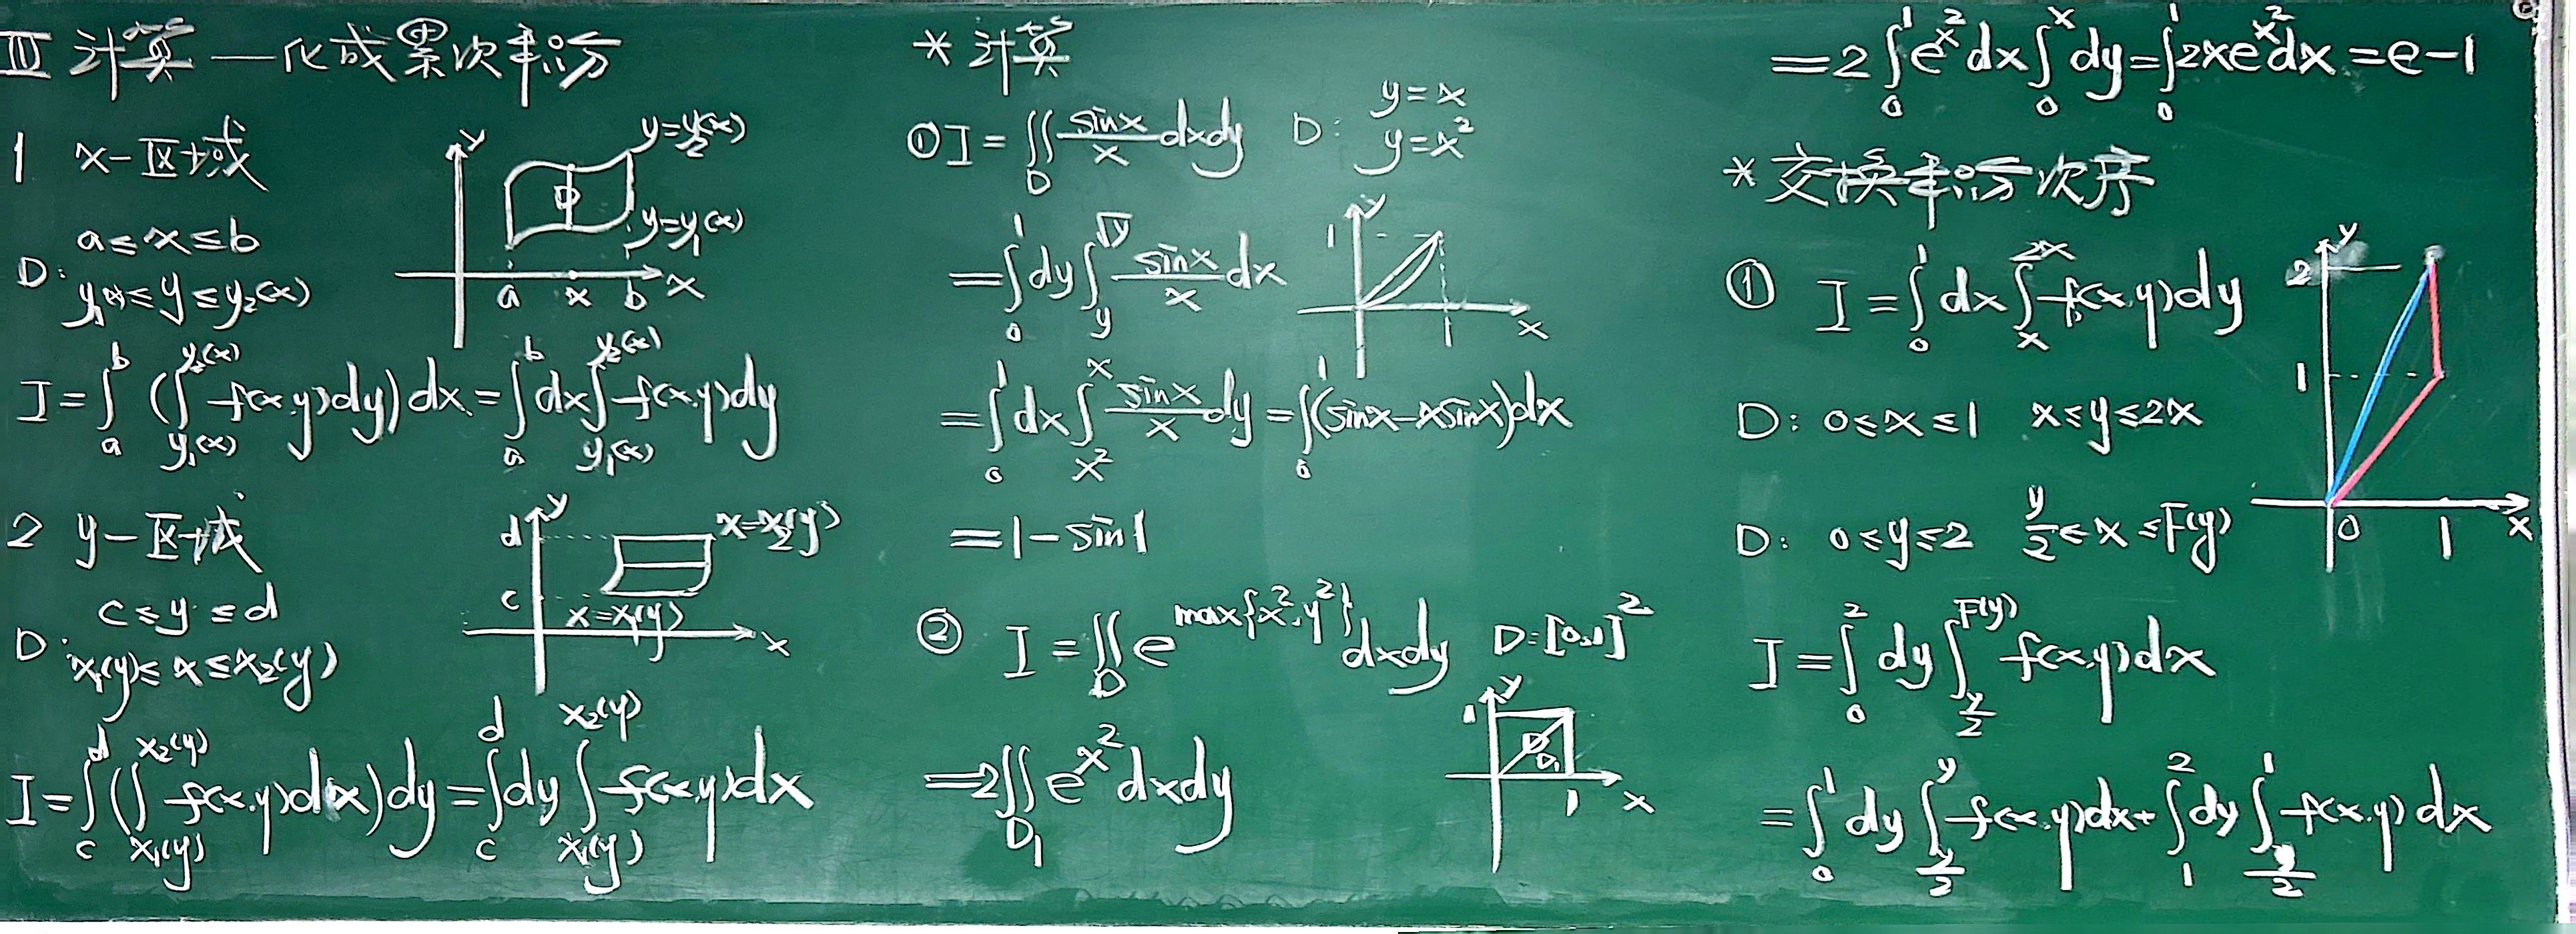 Ⅲ 计算 — 化成累次积分
1 x-区域
D: a≤x≤b
y₁(x)≤y≤y₂(x)
y
y=y₂(x)
D
y=y₁(x)
a x b x
I=∫_a^b (∫_{y₁(x)}^{y₂(x)} f(x,y)dy)dx=∫_a^b dx∫_{y₁(x)}^{y₂(x)} f(x,y)dy
2 y-区域
D: c≤y≤d
x₁(y)≤x≤x₂(y)
y
d
x=x₂(y)
c
x=x₁(y)
x
I=∫_c^d (∫_{x₁(y)}^{x₂(y)} f(x,y)dx)dy=∫_c^d dy∫_{x₁(y)}^{x₂(y)} f(x,y)dx
* 计算
① I=∬_D sinx/x dxdy D: y=x
y=x²
=∫_0^1 dy∫_y^{√y} sinx/x dx
y
1
1 x
=∫_0^1 dx∫_{x²}^x sinx/x dy=∫_0^1 (sinx-xsinx)dx
=1-sin1
② I=∬_D e^{max{x²,y²}} dxdy D=[0,1]²
y
1
D
D₁
1 x
=2∬_{D₁} e^{x²} dxdy
=2∫_0^1 e^{x²}dx∫_0^x dy=∫_0^1 2xe^{x²}dx=e-1
* 交换积分次序
① I=∫_0^1 dx∫_x^{2x} f(x,y)dy
D: 0≤x≤1 x≤y≤2x
D: 0≤y≤2 y/2≤x≤F(y)
y
2
1
0 1 x
I=∫_0^2 dy∫_{y/2}^{F(y)} f(x,y)dx
=∫_0^1 dy∫_{y/2}^y f(x,y)dx+∫_1^2 dy∫_{y/2}^1 f(x,y)dx